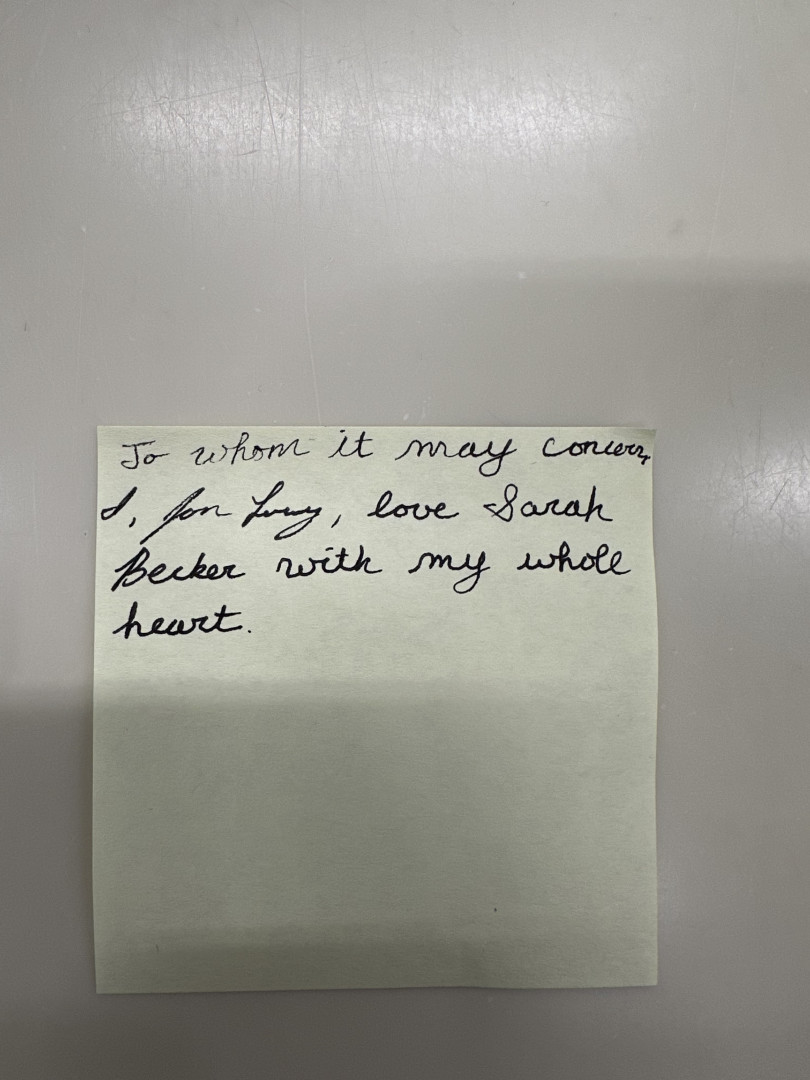 To whom it may concern,
I, Jon, love Sarah
Becker with my whole
heart.